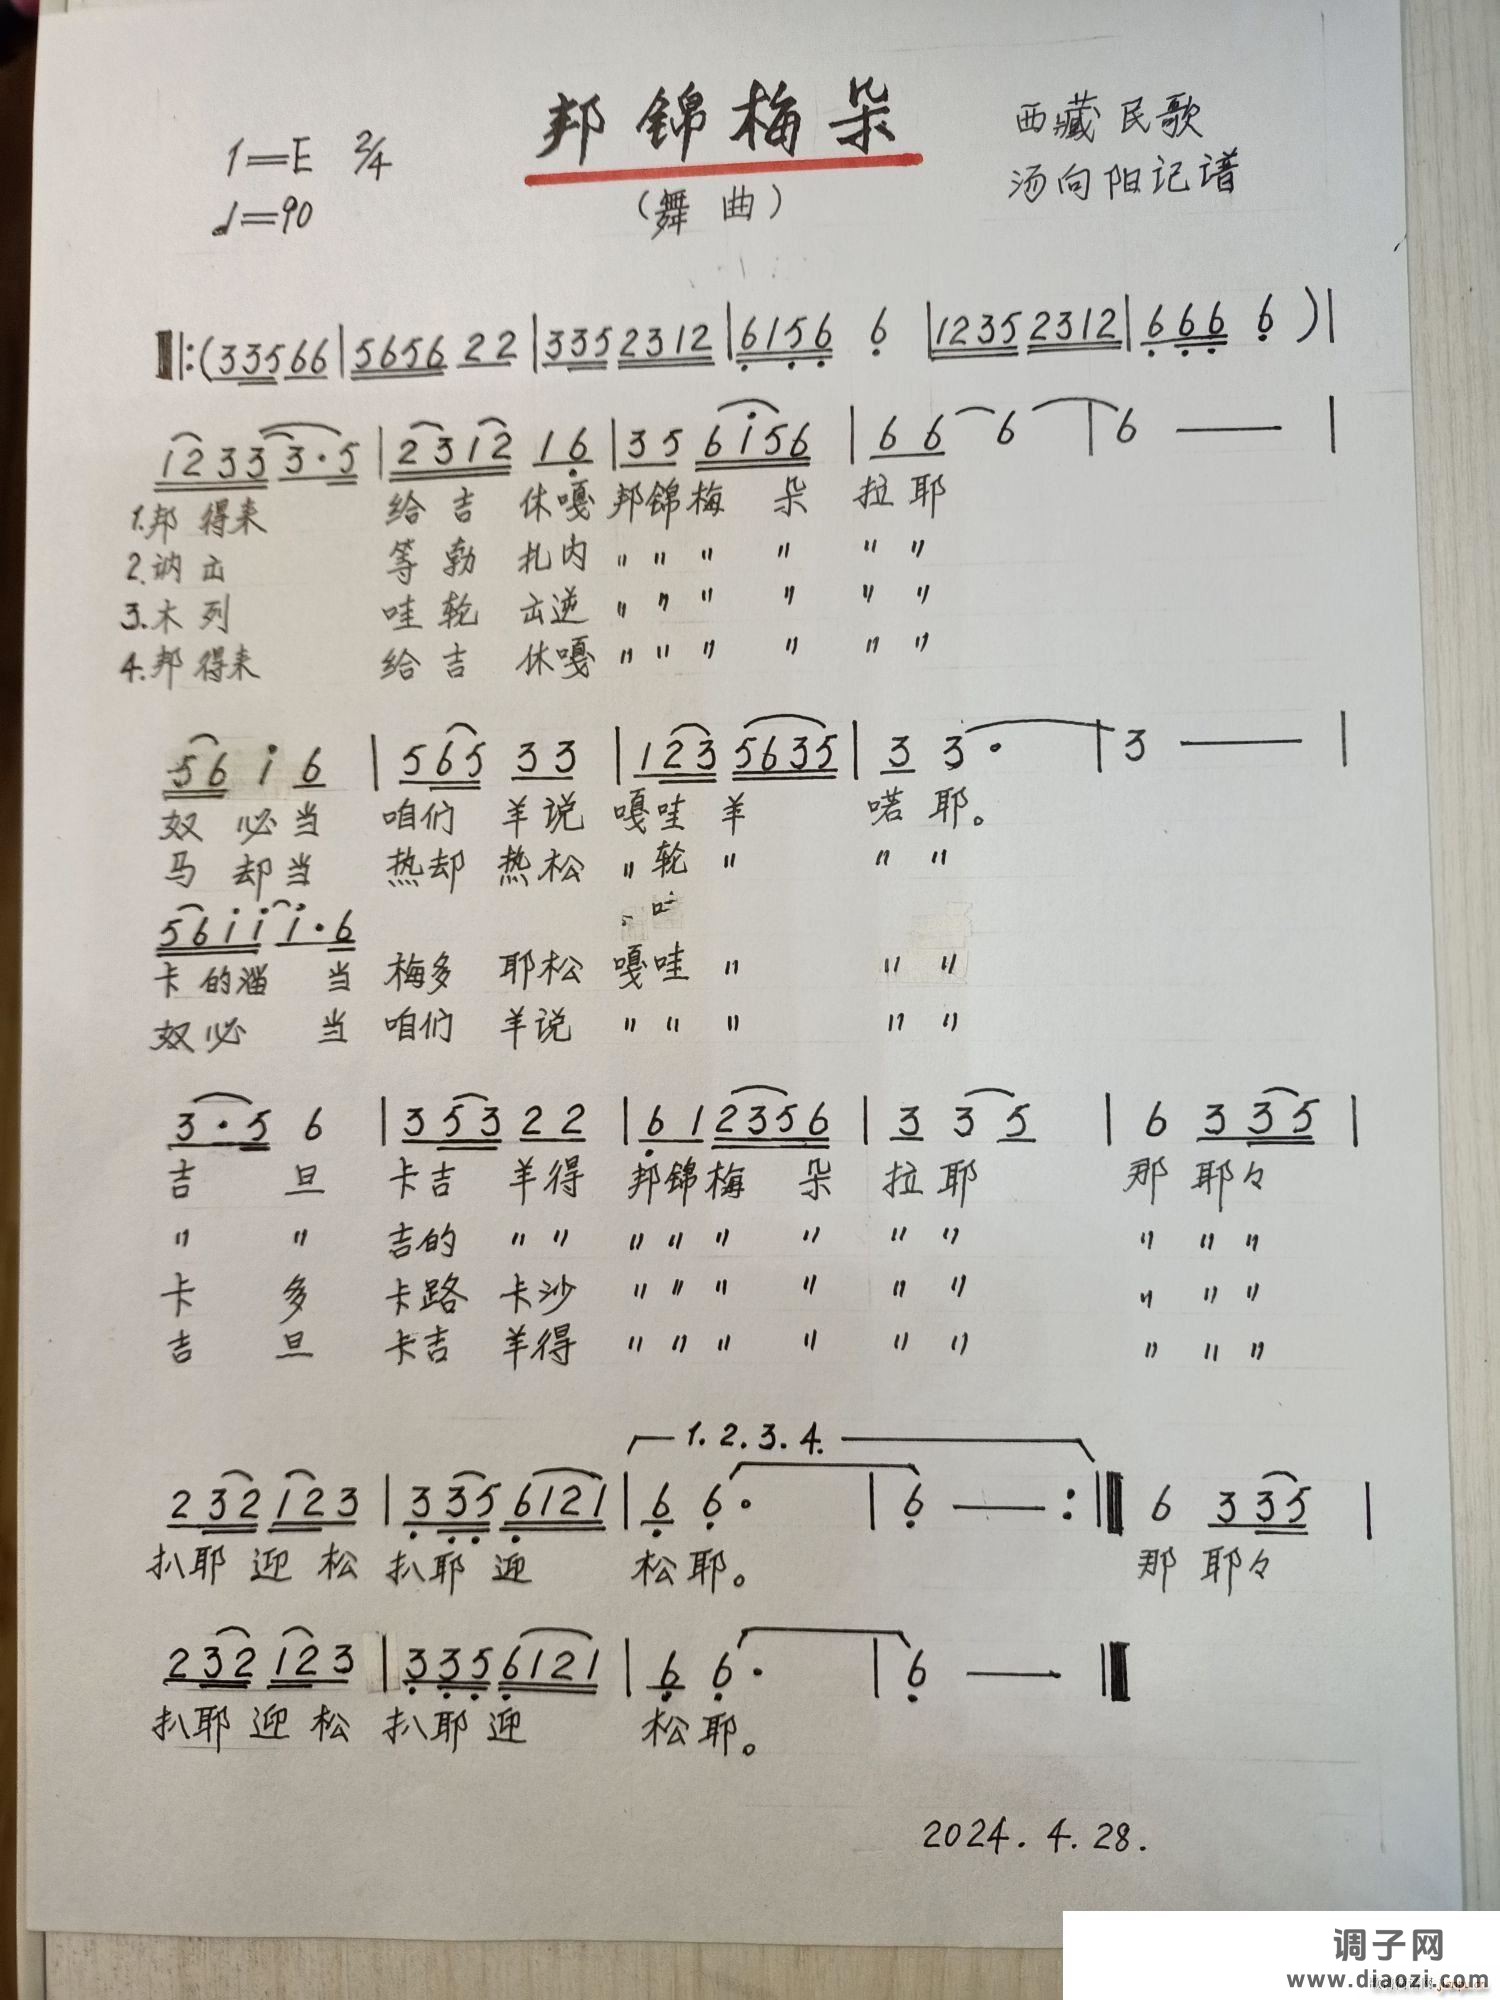 邦锦梅朵
(舞曲)
1=E 2/4
♩=90
西藏民歌
汤向阳记谱
‖:(33566|5656 22|335 2312|6156 6|1235 2312|666 6)|
1233 3·5|2312 16|35 6i56|66 6|6 —|
1.邦得来 给吉 休嘎 邦锦梅 朵 拉耶
2.讷 等勃 扎内 〃 〃 〃 〃 〃 〃
3.木列 哇轮 逆 〃 〃 〃 〃 〃 〃
4.邦得来 给吉 休嘎 〃 〃 〃 〃 〃 〃
56 i 6|565 33|123 5635|3 3·|3 —|
奴必当 咱们 羊说 嘎哇羊 喏耶。
马却当 热却 热松 〃轮〃 〃 〃
56ii i·6
卡的淄当 梅多 耶松 嘎哇〃 〃 〃
奴必当 咱们 羊说 〃 〃 〃 〃 〃
3·5 6|353 22|61 2356|3 35|6 335|
吉旦 卡吉 羊得 邦锦梅 朵 拉耶 那 耶々
〃 〃 吉的 〃 〃 〃 〃 〃 〃 〃 〃 〃 〃 〃
卡多 卡路 卡沙 〃 〃 〃 〃 〃 〃 〃 〃 〃
吉旦 卡吉 羊得 〃 〃 〃 〃 〃 〃 〃 〃 〃
1.2.3.4.
232 123|335 6121|6 6·|6 —:‖ 6 335|
扒耶 迎松 扒耶 迎 松耶。 那 耶々
232 123|335 6121|6 6·|6 —‖
扒耶 迎松 扒耶 迎 松耶。
2024.4.28.
调子网
www.diaozi.com